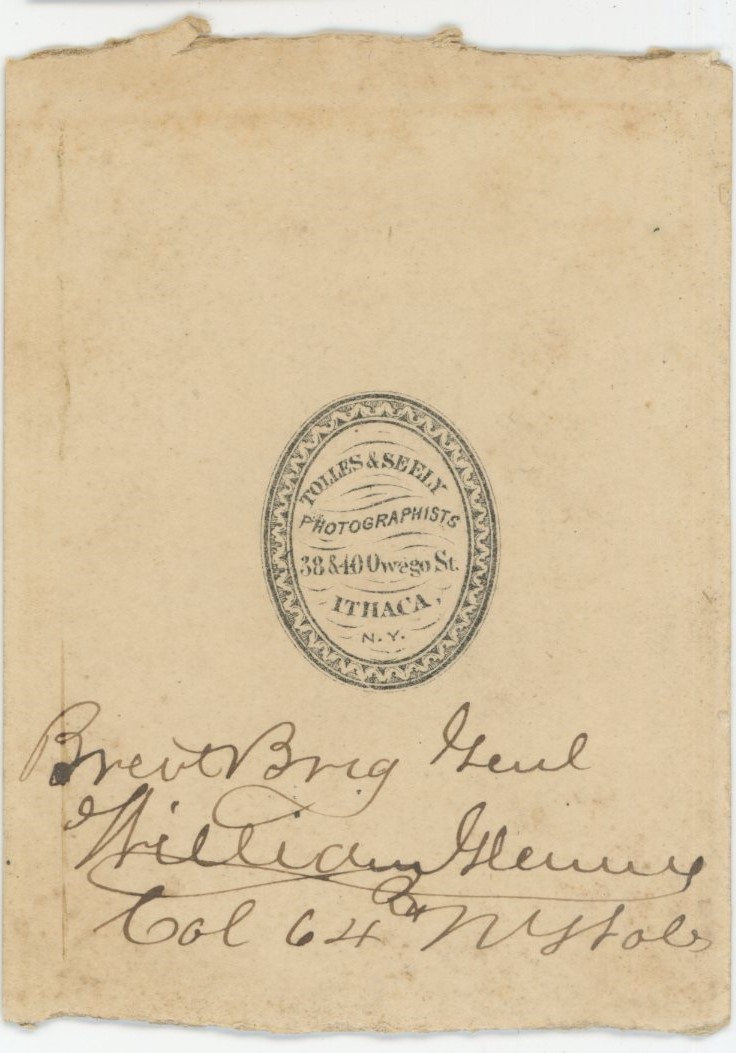 TOLLES & SEELY
PHOTOGRAPHISTS
38 & 40 Owego St.
ITHACA,
N.Y.
Brevt Brig Genl
William Glenny
Col 64th N Y Vols